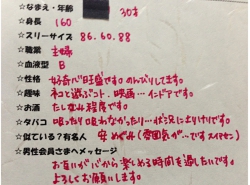 ☆なまえ・年齢 30才
☆身長 160
☆スリーサイズ 86.60.88
☆職業 主婦
☆血液型 B
☆性格 好奇心旺盛です。のんびりしてます。
☆趣味 ネコと遊ぶコト、映画…インドアです。
☆お酒 たしなむ程度です。
☆タバコ 吸ったり吸わなかったり…状況によりけりです。
☆似ている?有名人 安めぐみ(雰囲気が…ですスイマセン)
☆男性会員さまへメッセージ
お互いがバから楽しめる時間を過したいです。
よろしくお願いします。